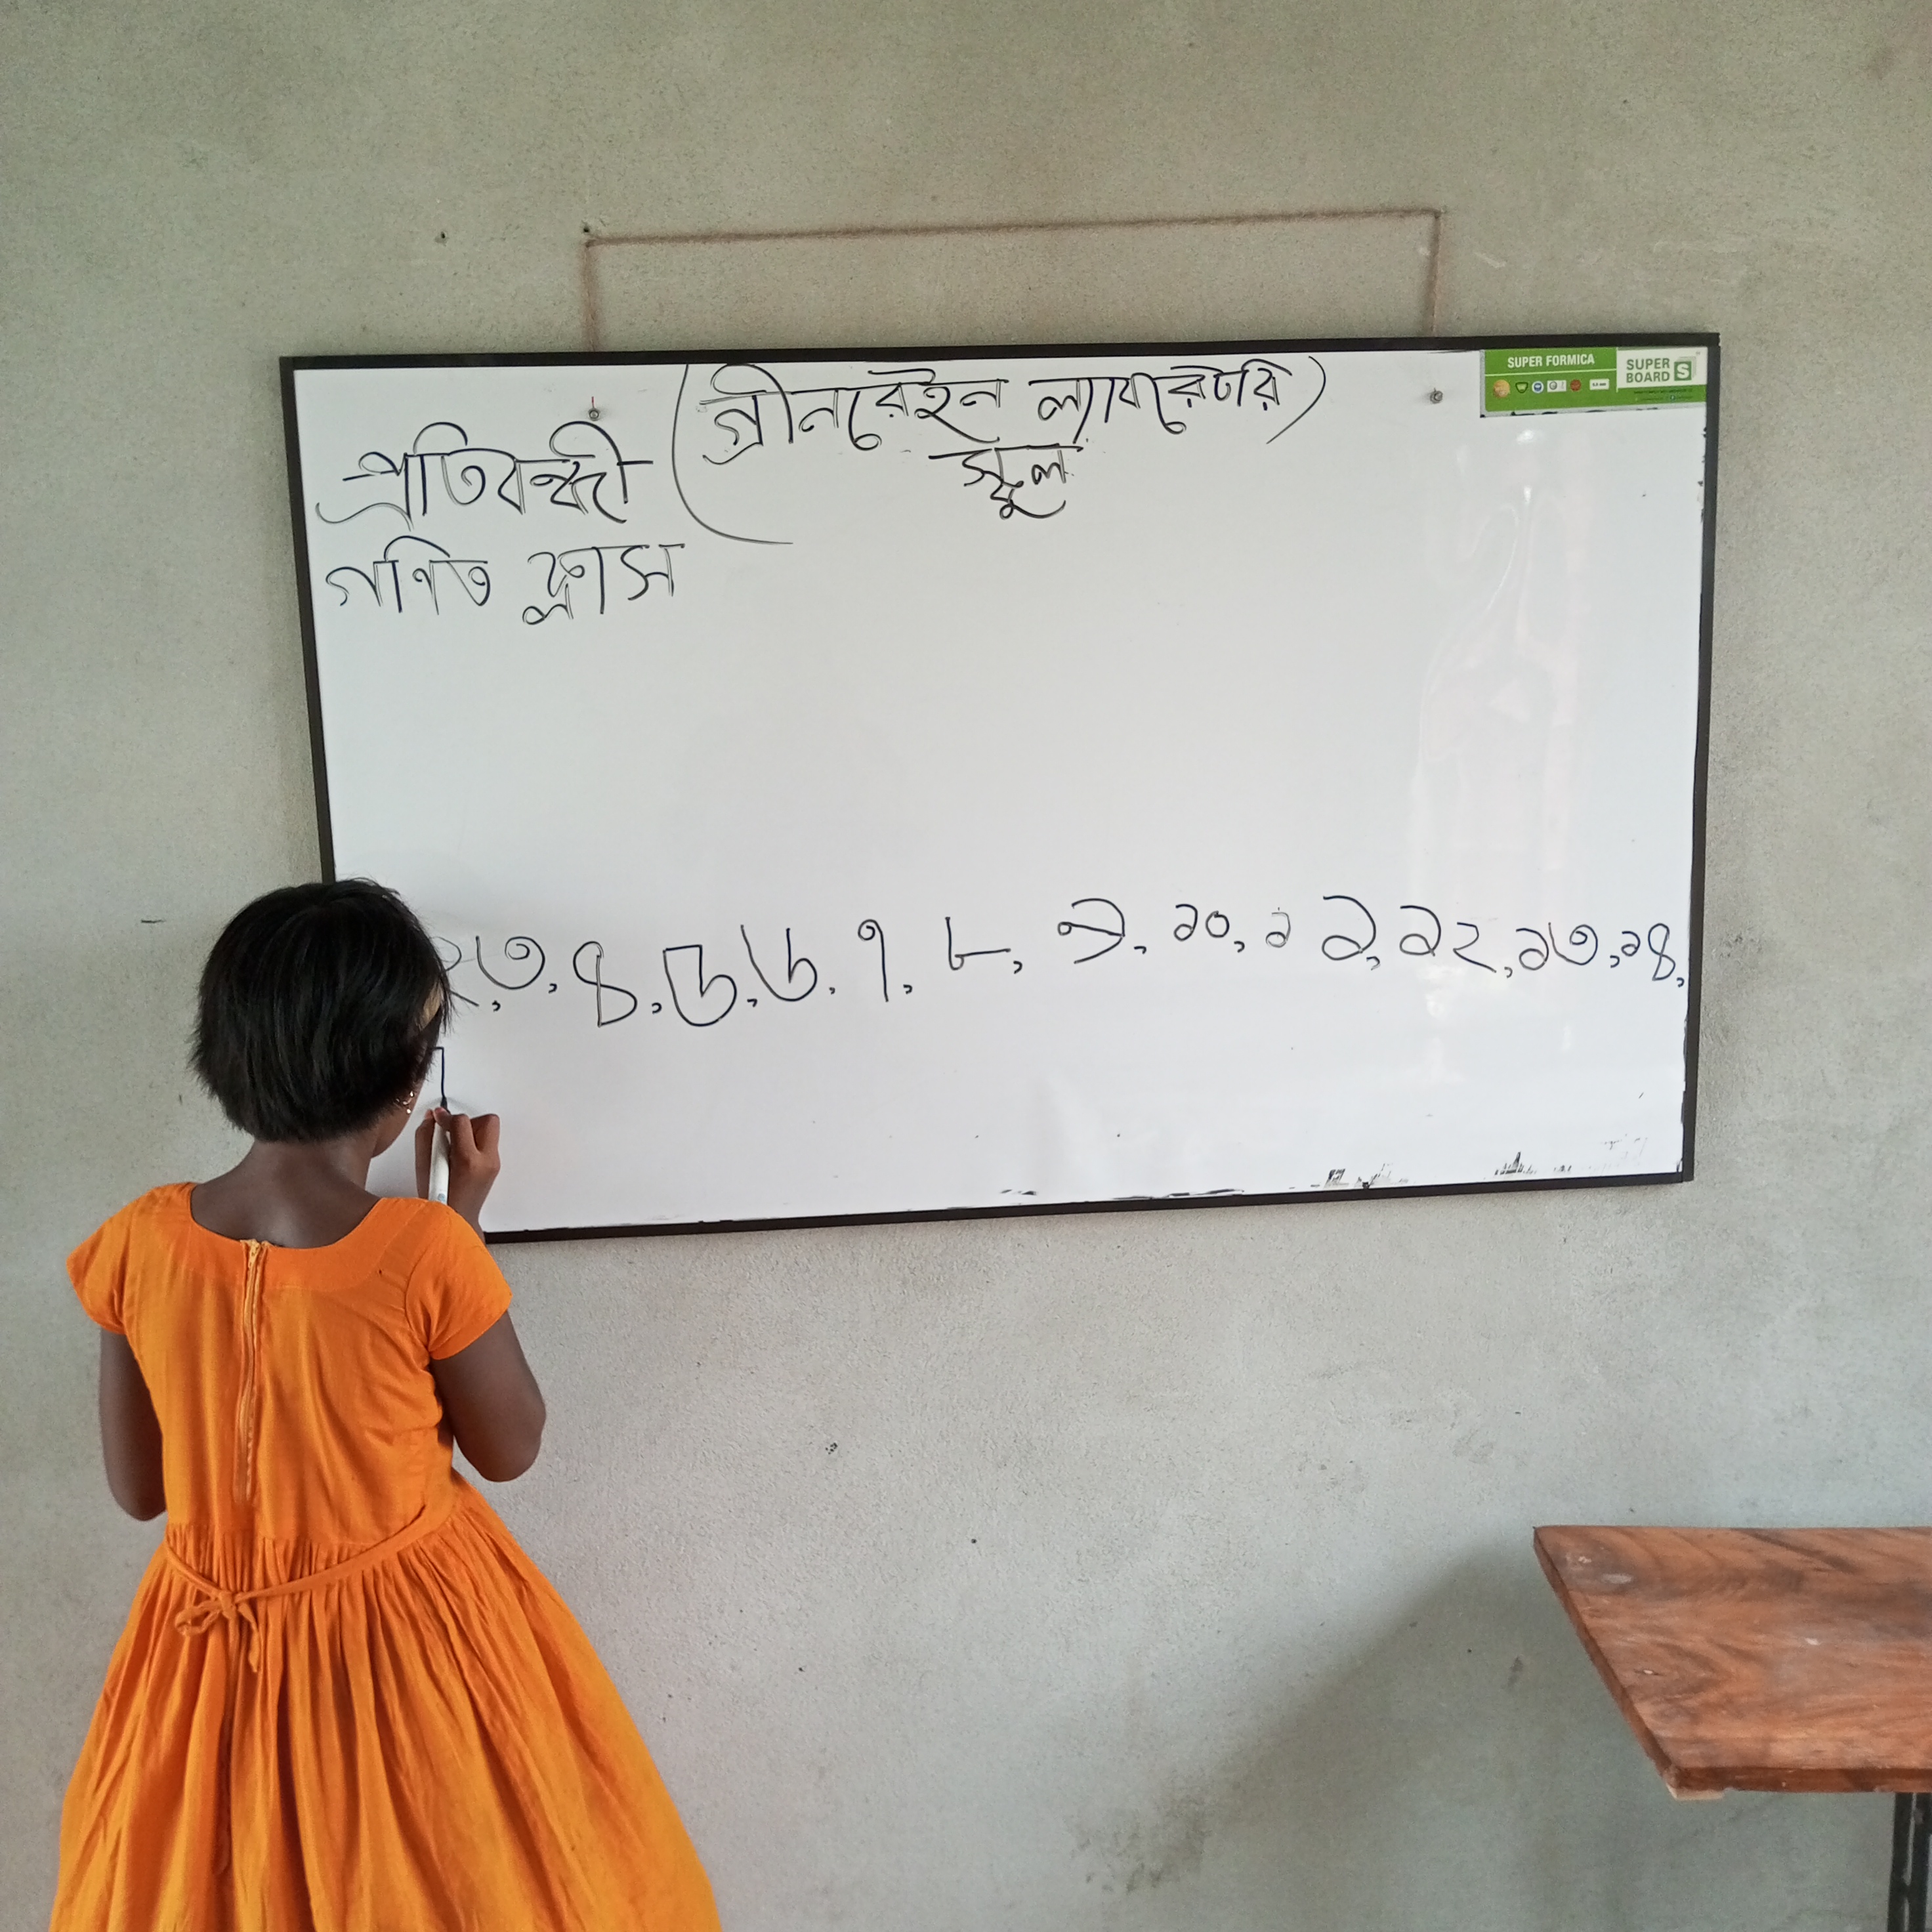 (গ্রীনরেইন ল্যাবরেটরি)
স্কুল
প্রতিবন্ধী
গণিত ক্লাস
SUPER FORMICA
SUPER BOARD S
২,৩,৪,৫,৬,৭,৮,৯,১০,১১,১২,১৩,১৪,